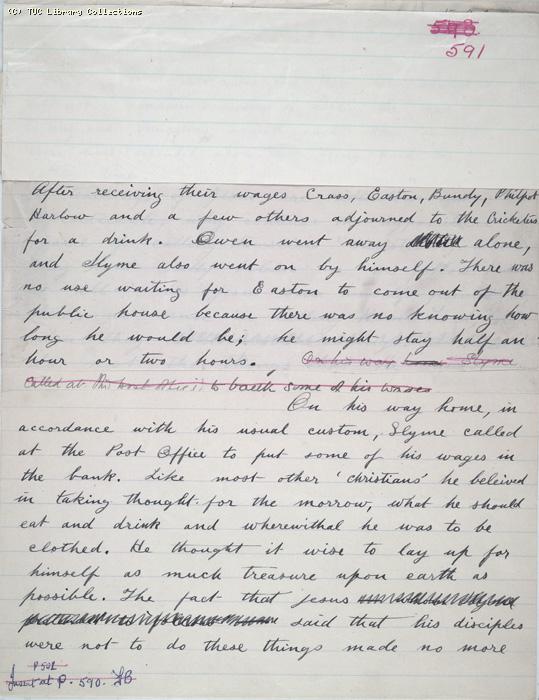 (C) TUC Library Collections
591
After receiving their wages, Crass, Easton, Bundy, Philpot
Harlow and a few others adjourned to the Cricketers
for a drink. Owen went away alone,
and Slyme also went on by himself. There was
no use waiting for Easton to come out of the
public house because there was no knowing how
long he would be; he might stay half an
hour or two hours. On his way home Slyme
called at the Post Office to bank some of his wages
On his way home, in
accordance with his usual custom, Slyme called
at the Post Office to put some of his wages in
the bank. Like most other 'christians' he beleived
in taking thought for the morrow, what he should
eat and drink and wherewithal he was to be
clothed. He thought it wise to lay up for
himself as much treasure upon earth as
possible. The fact that Jesus
said that his disciples
were not to do these things made no more
Insert at P. 590.